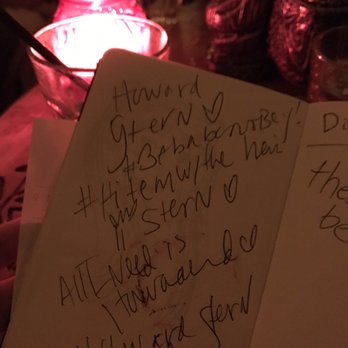 Howard
Stern ♡
#BababooeyBey!
#Hitemw/the hein
Stern ♡
All I Need is
Howaaard ♡
Howard Stern
Di
the
be